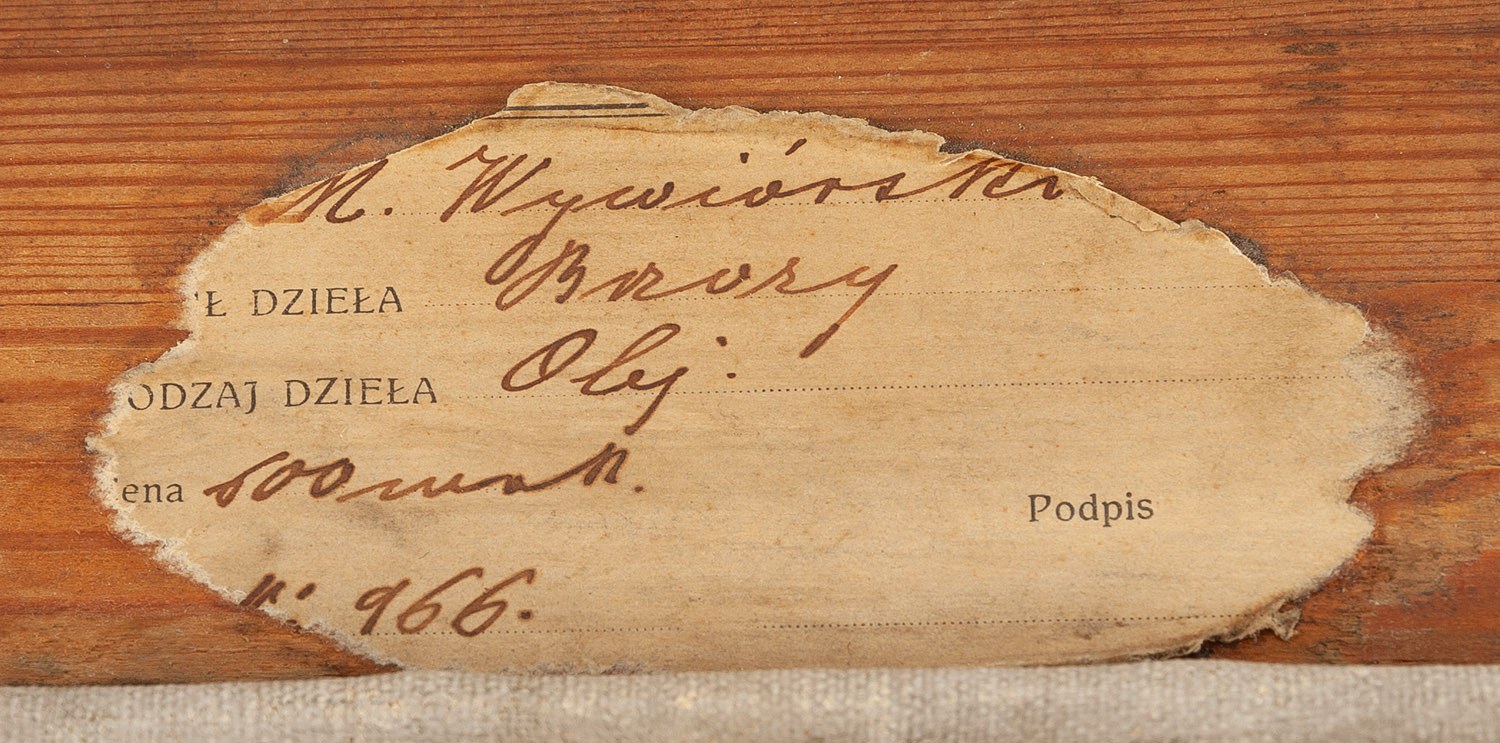 M. Wywiórski
Ł DZIEŁA Brzozy
ODZAJ DZIEŁA Olej.
ena 600 mk.
Podpis
№: 966.